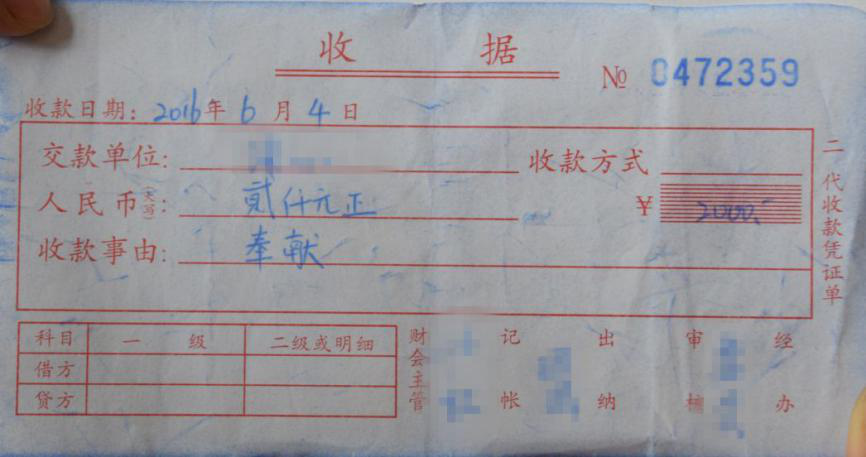 收 据
№ 0472359
收款日期: 2016年 6 月 4 日
交款单位: 收款方式
人民币(大写): 贰仟元正 ¥ 2000.-
收款事由: 奉献
二代收款凭证单
科目 一 级 二级或明细
借方
贷方
财会主管 记帐 出纳 审核 经办